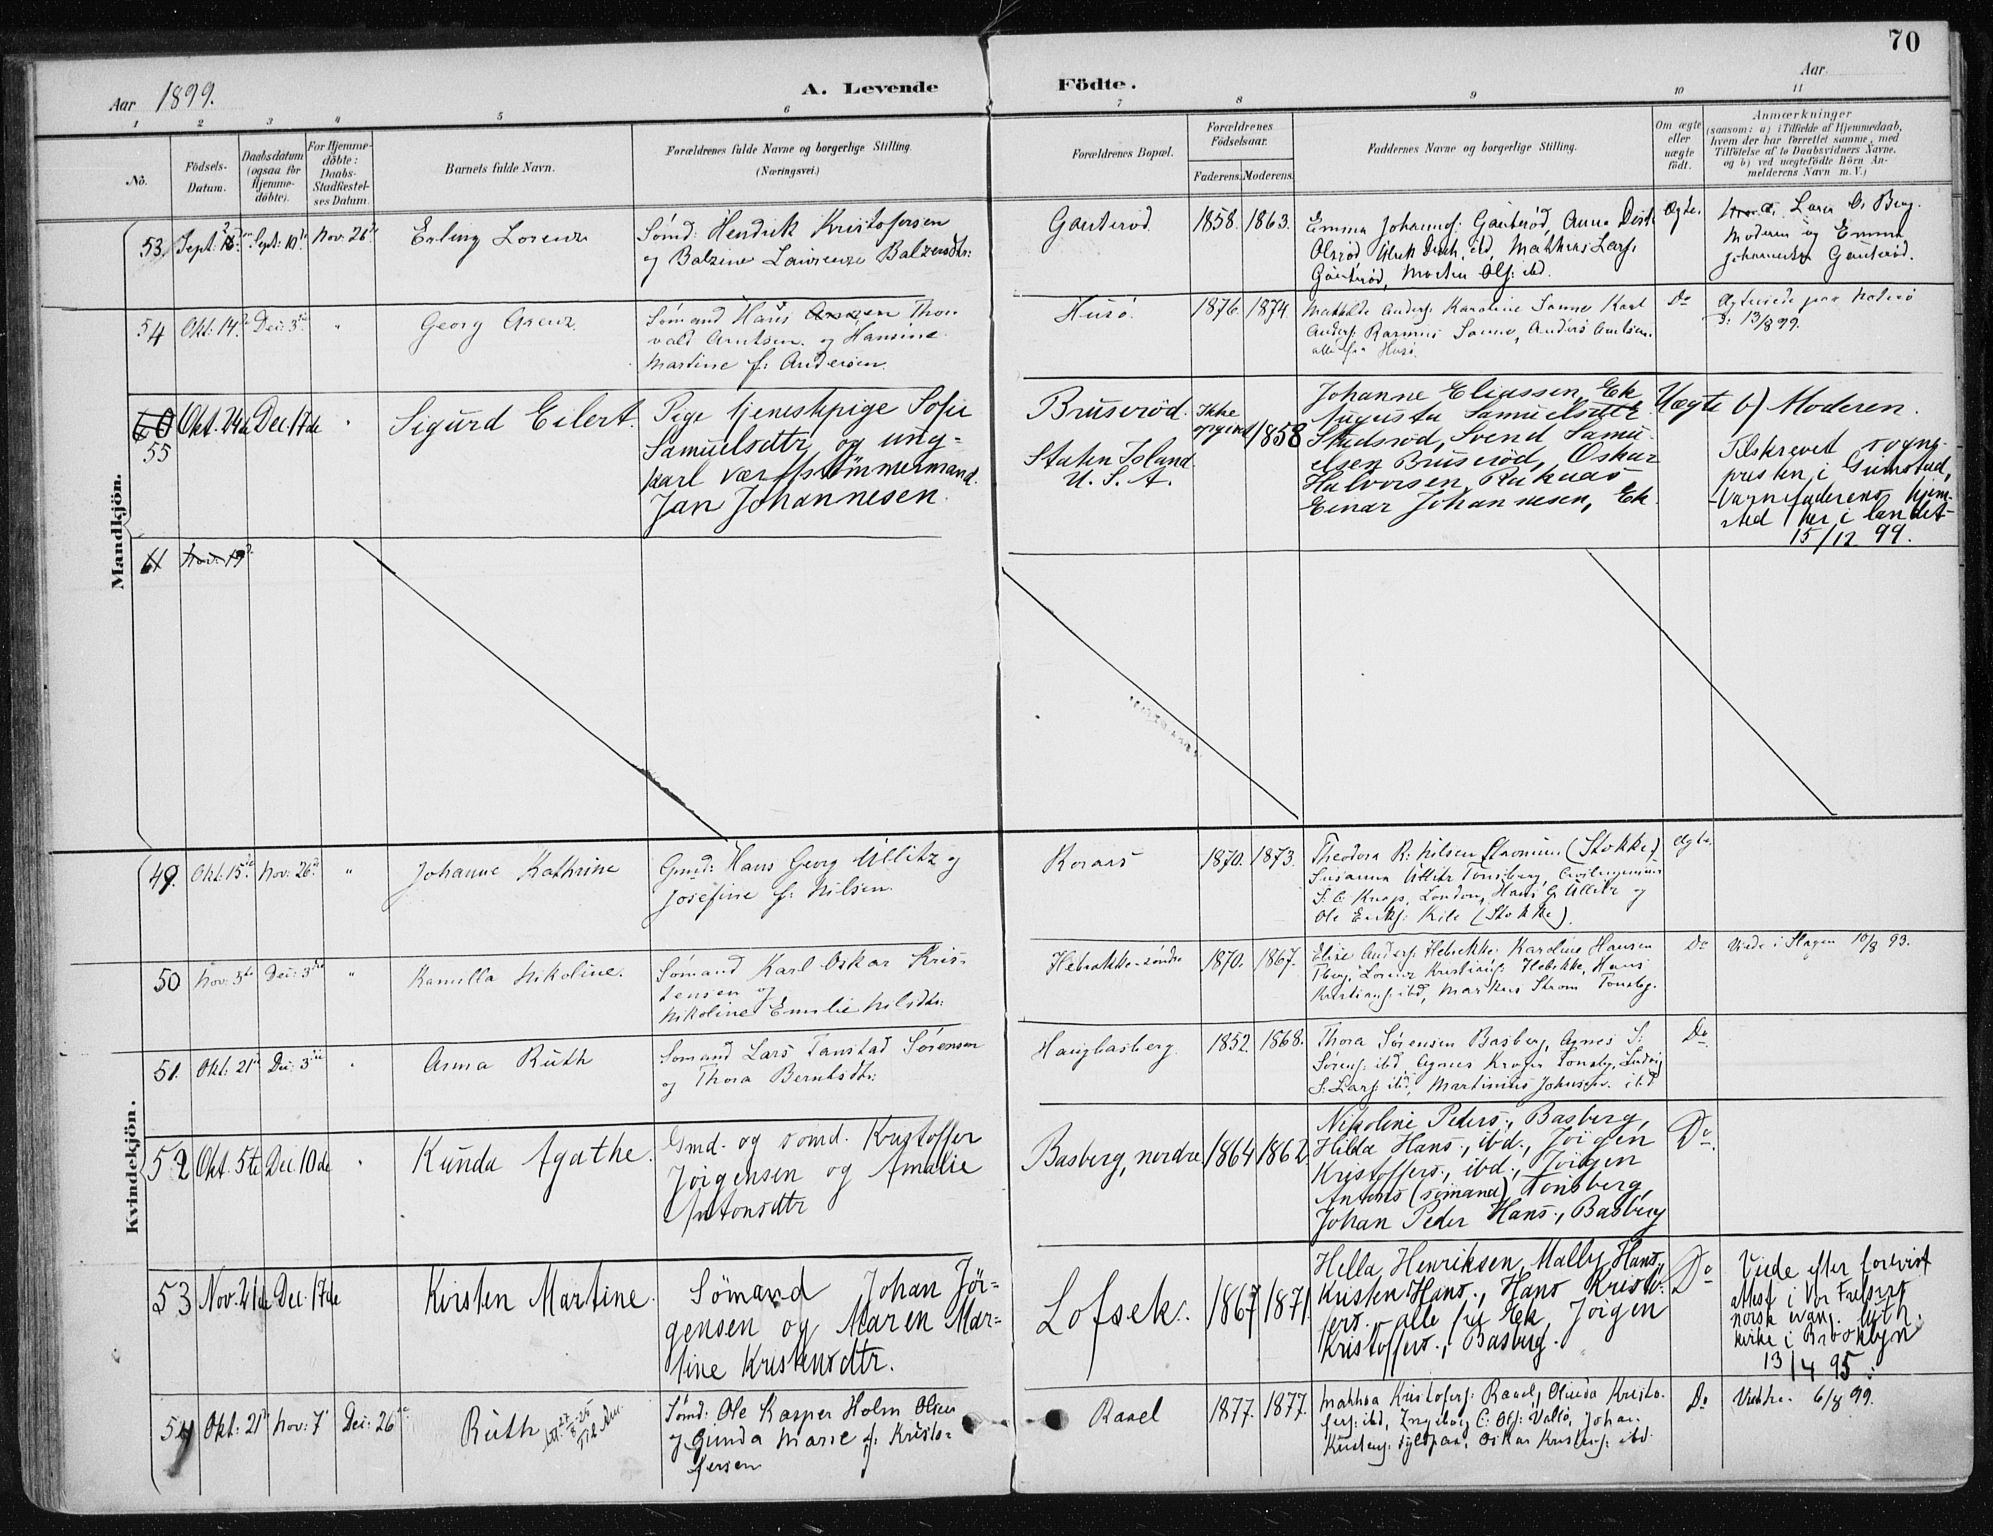 70
Aar 1899.
A. Levende Födte.
Aar
1 2 3 4 5 6 7 8 9 10 11
No.
Födsels-Datum.
Daabsdatum (ogsaa for Hjemme-døbte).
For Hjemme-døbte: Daabs-Stadfæstel-ses Datum.
Barnets fulde Navn.
Forældrenes fulde Navne og borgerlige Stilling. (Næringsvei.)
Forældrenes Bopæl.
Forældrenes Födselsaar.
Faderens. Moderens.
Faddernes Navne og borgerlige Stilling.
Om ægte eller uægte födt.
Anmærkninger
(saasom: a) i Tilfælde af Hjemmedaab,
hvem der har forrettet samme, med
Tilföielse af to Daabsvidners Navne.
og b) ved uægtefödte Börn An-
melderens Navn m. V.)
Mandkjön.
53. Sept: Sept: 10de Nov: 26de Erling Lorenz
Sømd: Hendrik Kristofersen
og Balzine Lawrenze Balzersdtr:
Gauterød 1858. 1863.
Emma Johannesf: Gauterød, Anna Dorth
Olsrød, ibd, Mathias Larsf:
Gauterød, Morten Olsf: ibd.
Ægte.
Moderen og Emma
Johannesen Gauterød.
54 Okt. 14de Dec: 3die " Georg Arenz
Sømand Hans Thor
vald Arntsen og Hansine
Martine f: Andersen.
Husø. 1876. 1874.
Mathilde Andersf: Karoline Sanne Karl
Andersf: Rasmus Sanne, Anders Arntsen
alle fra Husø.
Do
Ægteviede paa Nøterø
D: 13/8 99.
60 55 Okt. 24de Dec. 17de " Sigurd Eilert.
Pige tjenestepige Sofie
Samuelsdtr og ung-
karl værftstömmermand.
Jan Johannesen.
Bruserød.
Staten Island
U. S. A.
Ikke opgivet 1858
Johanne Eliassen, Ek
Augusta Samuelsdtr
Skidsrød, Svend Samu-
elsen Bruserød, Oskar
Halvorsen,
Einar Johannesen, Ek.
Uægte b) Moderen.
Tilskrevet sogne-
presten i Grimstad,
barnefaderens hjem-
sted her i landet
15/12 99.
61 Nov: 19de
Kvindekjön.
49. Okt: 15de Nov: 26de " Johanne Kathrine
Gmd: Hans Georg Ullitz og
Josefine f: Nilsen.
Roraas 1870. 1873.
Theodora R: Nilsen (Stokke)
Susanna Ullitz Tønsberg, Civilingeniør
S. C. Knap, London, Hans G Ullitz og
Ole Eriksf: Kile (Stokke).
Ægte
50 Nov: 5te Dec: 3die " Kamilla Nikoline.
Sømand Karl Oskar Kris-
tensen og
Nikoline Emilie Nilsdtr:
Hebrokke søndre 1870. 1867.
Elise Andersf: Hebrekke Karoline Hansen
Tbrg, Lorenz Kristiansf: Hebekke, Hans
Kristiansf: ibd, Markus Strøm Tønsbg.
Do Viede i Slagen 10/8 93.
51. Okt: 21de Dec: 3die " Anna Ruth
Sømand Lars Tanstad Sørensen
og Thora Berntsdtr:
Haugbasberg 1852. 1868.
Thora Sørensen Basberg, Agnes S:
Sørensf: ibd, Agnes Krøger Tønsbg, Ludvig
S: Larsf: ibd, Martinius Johnsen. ibd
Do
52 Okt. 5te Dec. 10de " Kunda Agathe.
Gmd. og sømd. Kristoffer
Jörgensen og Amalie
Antonsdtr
Basberg, nordre 1864 1862
Nikoline Peders., Basberg,
Hilda Hans., ibd., Jörgen
Kristoffers., ibd., Jörgen
Antons (sømand), Tönsberg,
Johan Peder Hans., Basberg
Do
53 Nov. 21de Dec. 17de Kirsten Martine.
Sømand Johan Jör-
gensen og Maren Mar-
tine Kristensdtr.
Lofsek. 1867 1871
Hella Henriksen, Mally Hans.
Kristen Hans., Hans Kristof-
fers. alle fra Ek, Jörgen
Kristoffers., Basberg.
Do
Viede efter forevist
attest i Vor Frelsers
norsk evang. luth.
kirke i Brooklyn
13/4 95.
54 Okt: 21de Nov: 7de Dec: 26de Ruth att. 27/8-25
Sømd: Ole Kasper Holm Olsen
og Gunda Marie f: Kristo-
fersen
Raael 1877. 1877.
Mathea Kristofersf: Raael, Olinda Kristo-
fersf: ibd, Ingeborg C: Olsf: Vallø, Johan
Kristensf: , Oskar Kristensf: ibd.
Do 6/8 99.